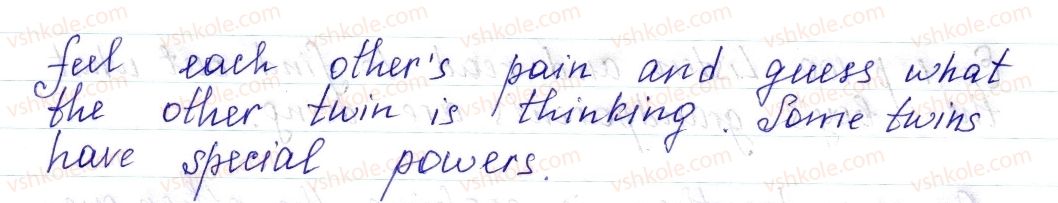 feel each other's pain and guess what
the other twin is thinking. Some twins
have special powers.